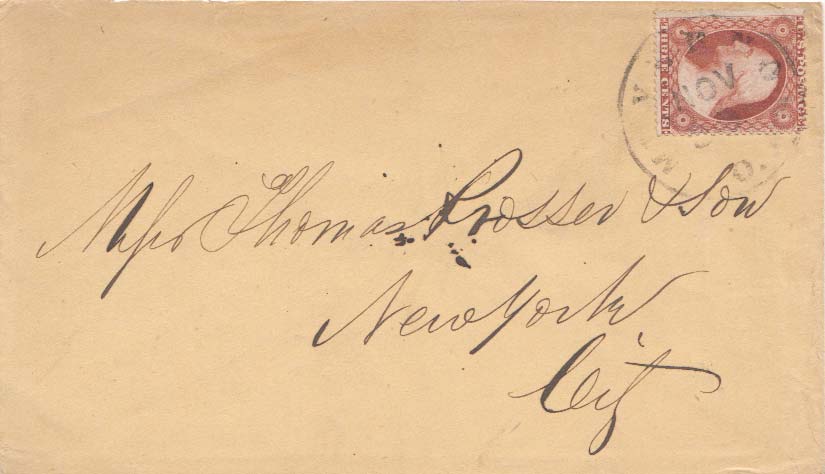 U.S. POSTAGE
THREE CENTS
NOV
Messrs Thomas Prosser & Son
New York
City